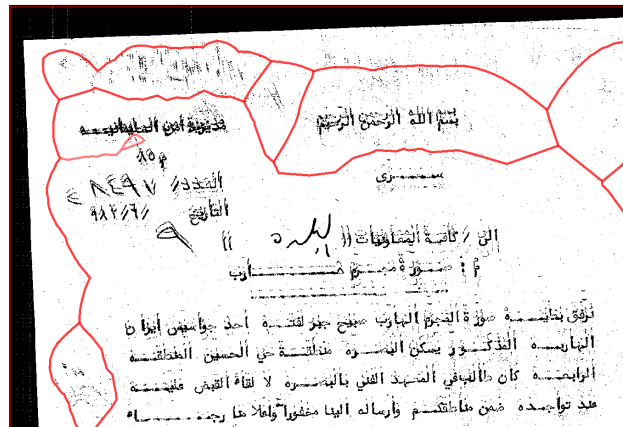 بسم الله الرحمن الرحيم
مديرية امن السليمانيـــه
م ٨٥
ســـرى
العدد// ٨٤٩٧
التاريخ //٦/ ٩٨٢
٩
الى / كافة المعاونيات // البلده //
م : صـورة مجـرم هـــارب
نرفق بطيــه صورة المجرم الهارب صبيح جبر لفتــه احد جواسيس ايران
الهاربــه المذكــور يسكن البصـره منطقـة حي الحسين المنطقــه
الرابعــه كان طالب في المعهد الفني بالبصـره لالقاء القبض عليــه
عند تواجـده ضمن مناطقكــم وارساله الينا مخفورا واعلامنا رجــاء